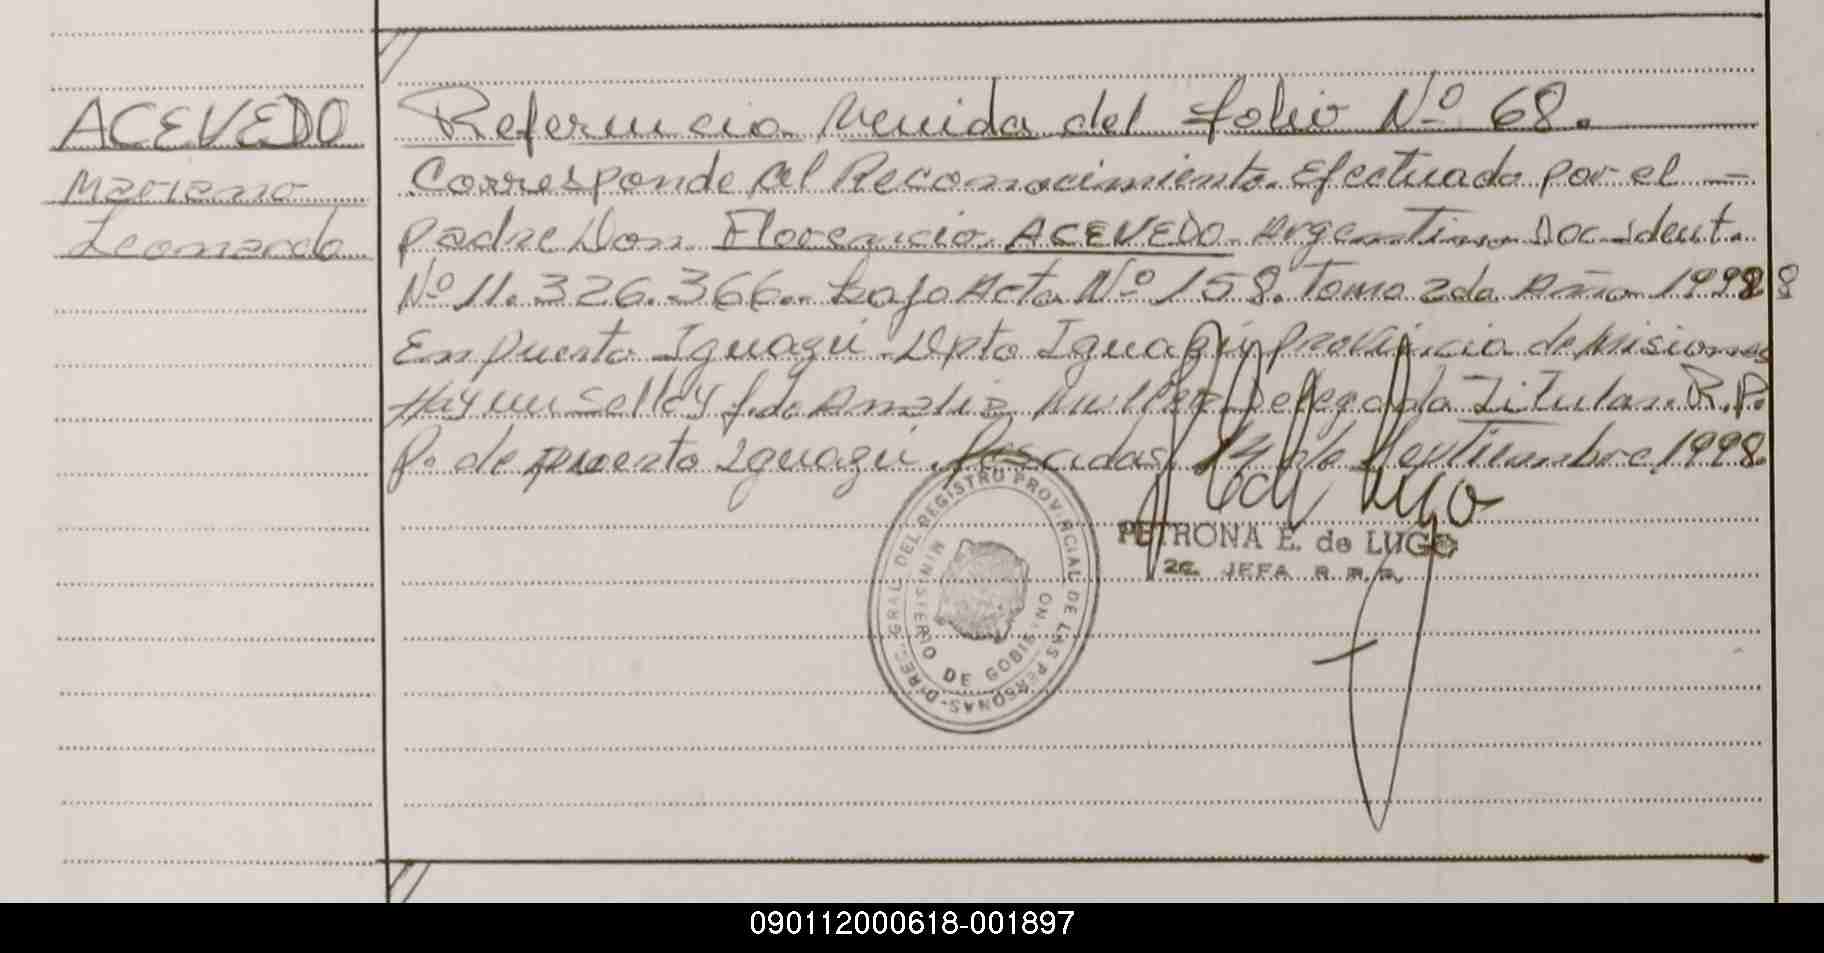 ACEVEDO
Mariano
Leonardo
Referencia Venida del folio Nº 68.
Corresponde al Reconocimiento Efectuado por el —
padre Don Florencio ACEVEDO Argentino Doc. Ident.
Nº 11.326.366.- bajo Acta Nº 158. Tomo 2do Año 1998 8
En Puerto Iguazú Dpto Iguazú provincia de Misiones
Hay un Sello y f. de Amalia Delegada Titular. R.P.
P. de puerto Iguazú. Posadas, 14 de Septiembre 1998.
PETRONA E. de LUGO
2da. JEFA R.P.P.
DIREC. GRAL. DEL REGISTRO PROVINCIAL DE LAS PERSONAS-
MINISTERIO DE GOBIERNO
090112000618-001897